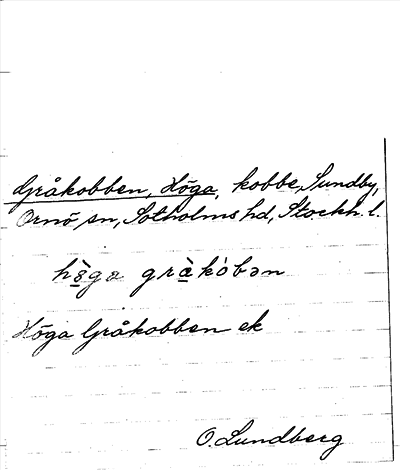 Gråkobben, Höga, kobbe, Sundby,
Ornö sn, Sotholms hd, Stockh. l.
hö̀ga grà̱kóbən
Höga Gråkobben ek
O. Lundberg